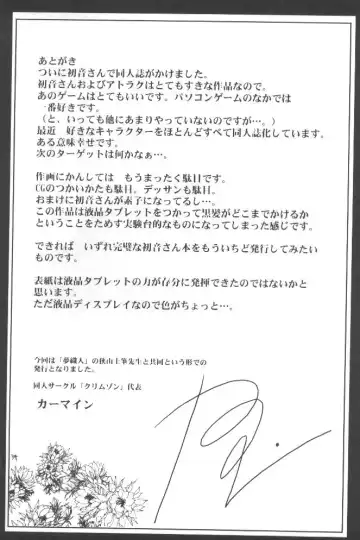 あとがき
ついに初音さんで同人誌がかけました。
初音さんおよびアトラクはとてもすきな作品なので。
あのゲームはとてもいいです。パソコンゲームのなかでは
一番好きです。
(と、いっても他にあまりやっていないのですが…。)
最近 好きなキャラクターをほとんどすべて同人誌化しています。
ある意味幸せです。
次のターゲットは何かなぁ…。
作画にかんしては もうまったく駄目です。
CGのつかいかたも駄目。デッサンも駄目。
おまけに初音さんが素子になってるし…。
この作品は液晶タブレットをつかって黒髪がどこまでかけるか
ということをためす実験台的なものになってしまった感じです。
できれば いずれ完璧な初音さん本をもういちど発行してみたい
ものです。
表紙は液晶タブレットの力が存分に発揮できたのではないかと
思います。
ただ液晶ディスプレイなので色がちょっと…。
今回は「夢織人」の狭山土筆先生と共同という形での
発行となりました。
同人サークル「クリムゾン」代表
カーマイン